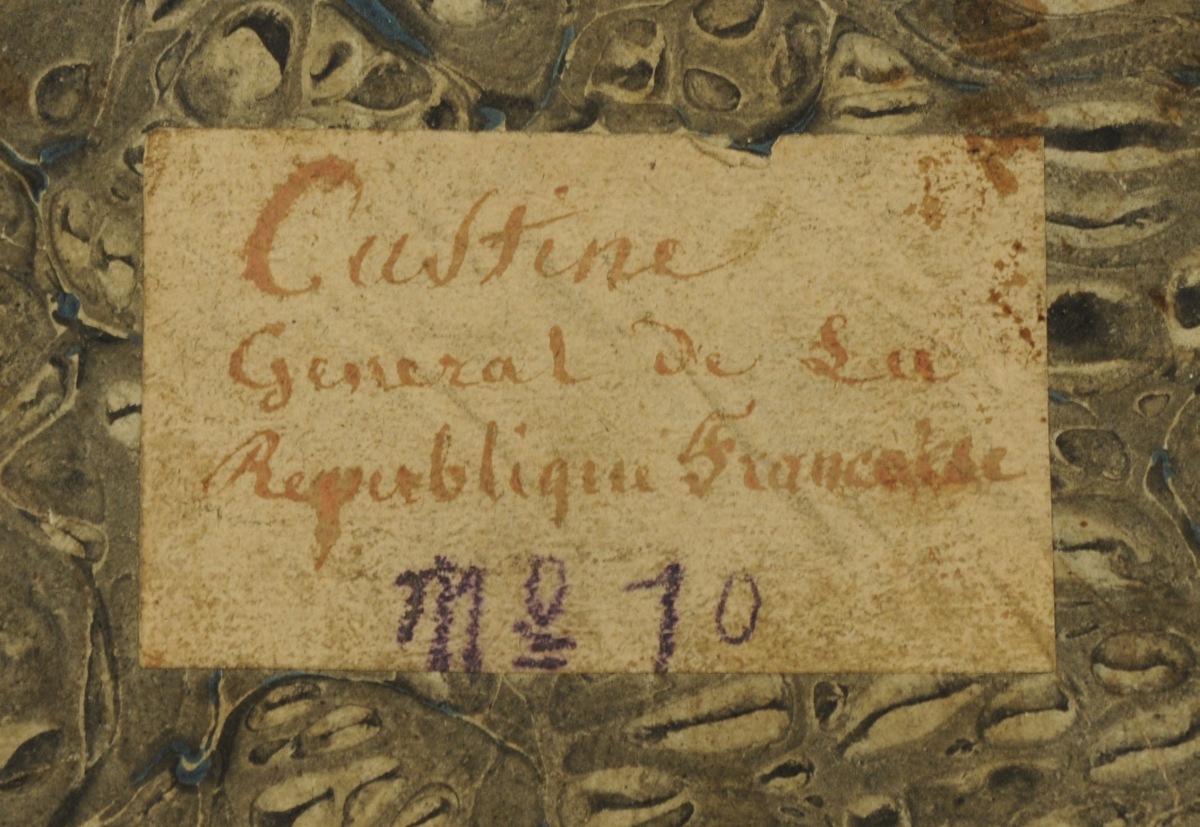 Custine
General de La
Republique Francoise
Nº 10